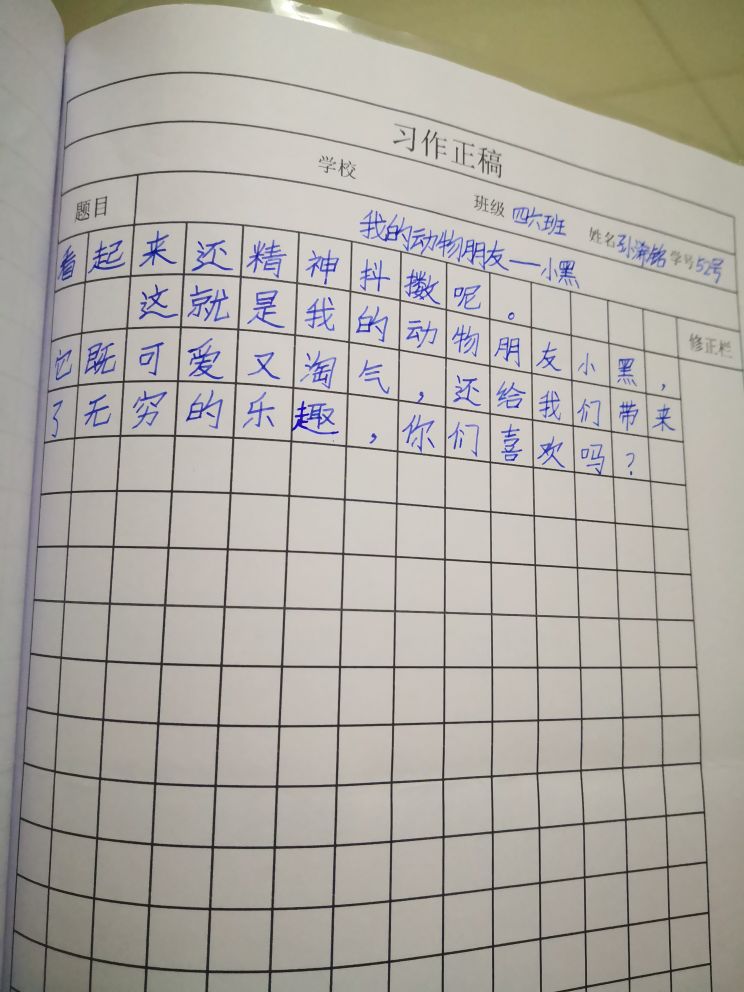 习作正稿
学校 班级 四六班 姓名 孙浠铭 学号 52号
题目 我的动物朋友—小黑
看起来还精神抖擞呢。
修正栏
这就是我的动物朋友小黑，
它既可爱又淘气，还给我们带来
了无穷的乐趣，你们喜欢吗？